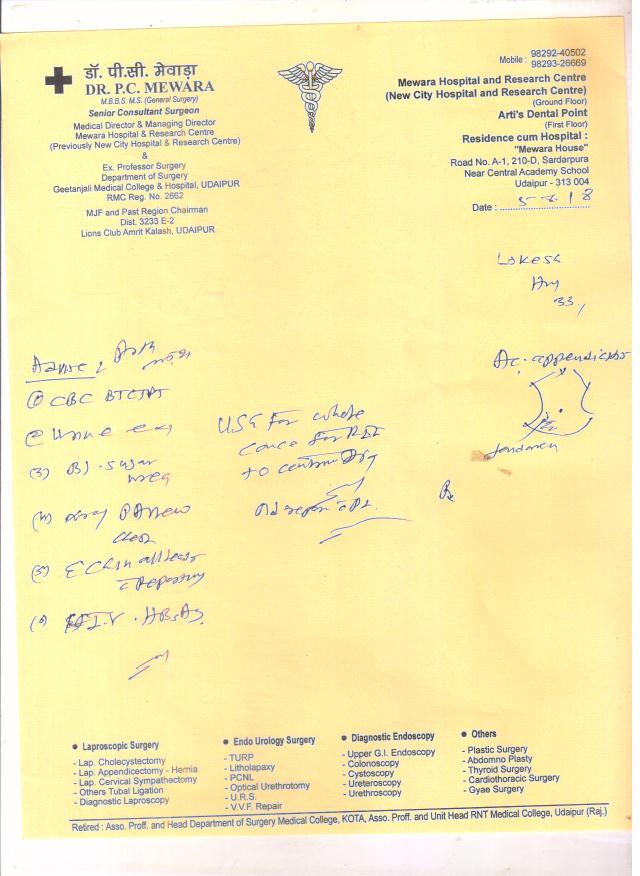 डॉ. पी.सी. मेवाड़ा
DR. P.C. MEWARA
M.B.B.S. M.S. (General Surgery)
Senior Consultant Surgeon
Medical Director & Managing Director
Mewara Hospital & Research Centre
(Previously New City Hospital & Research Centre)
&
Ex. Professor Surgery
Department of Surgery
Geetanjali Medical College & Hospital, UDAIPUR
RMC Reg. No. 2662
MJF and Past Region Chairman
Dist. 3233 E-2
Lions Club Amrit Kalash, UDAIPUR
Mobile : 98292-40502
98293-26669
Mewara Hospital and Research Centre
(New City Hospital and Research Centre)
(Ground Floor)
Arti's Dental Point
(First Floor)
Residence cum Hospital :
"Mewara House"
Road No. A-1, 210-D, Sardarpura
Near Central Academy School
Udaipur - 313 004
Date :
Lokesh
33
Ac. appendicitis
Advise
① CBC BTCT
② Urine
(3) Bl. sugar
urea
(4) Xray PA view
chest
(5) ECG
reporting
(6) H.I.V. HBsAg
USG For whole
to
Rx
● Laproscopic Surgery
- Lap. Cholecystectomy
- Lap. Appendicectomy - Hernia
- Lap. Cervical Sympathectomy
- Others Tubal Ligation
- Diagnostic Laproscopy
● Endo Urology Surgery
- TURP
- Litholapaxy
- PCNL
- Optical Urethrotomy
- U.R.S.
- V.V.F. Repair
● Diagnostic Endoscopy
- Upper G.I. Endoscopy
- Colonoscopy
- Cystoscopy
- Ureteroscopy
- Urethroscopy
● Others
- Plastic Surgery
- Abdomno Plasty
- Thyroid Surgery
- Cardiothoracic Surgery
- Gyae Surgery
Retired : Asso. Proff. and Head Department of Surgery Medical College, KOTA, Asso. Proff. and Unit Head RNT Medical College, Udaipur (Raj.)